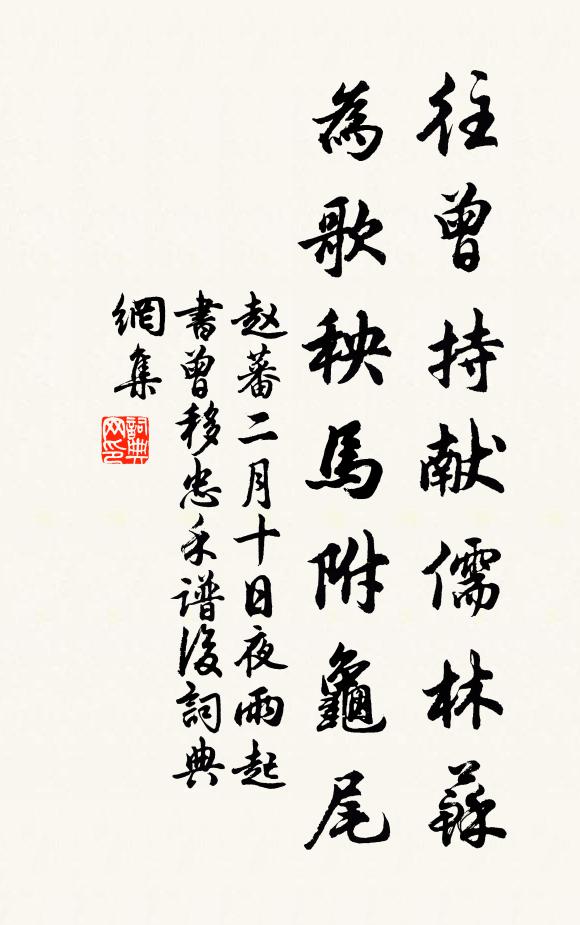 往曾持献儒林蘇
為歌秧馬附龜尾
赵蕃二月十日夜雨起
書曾移忠禾谱後詞典
網集
詞典网印